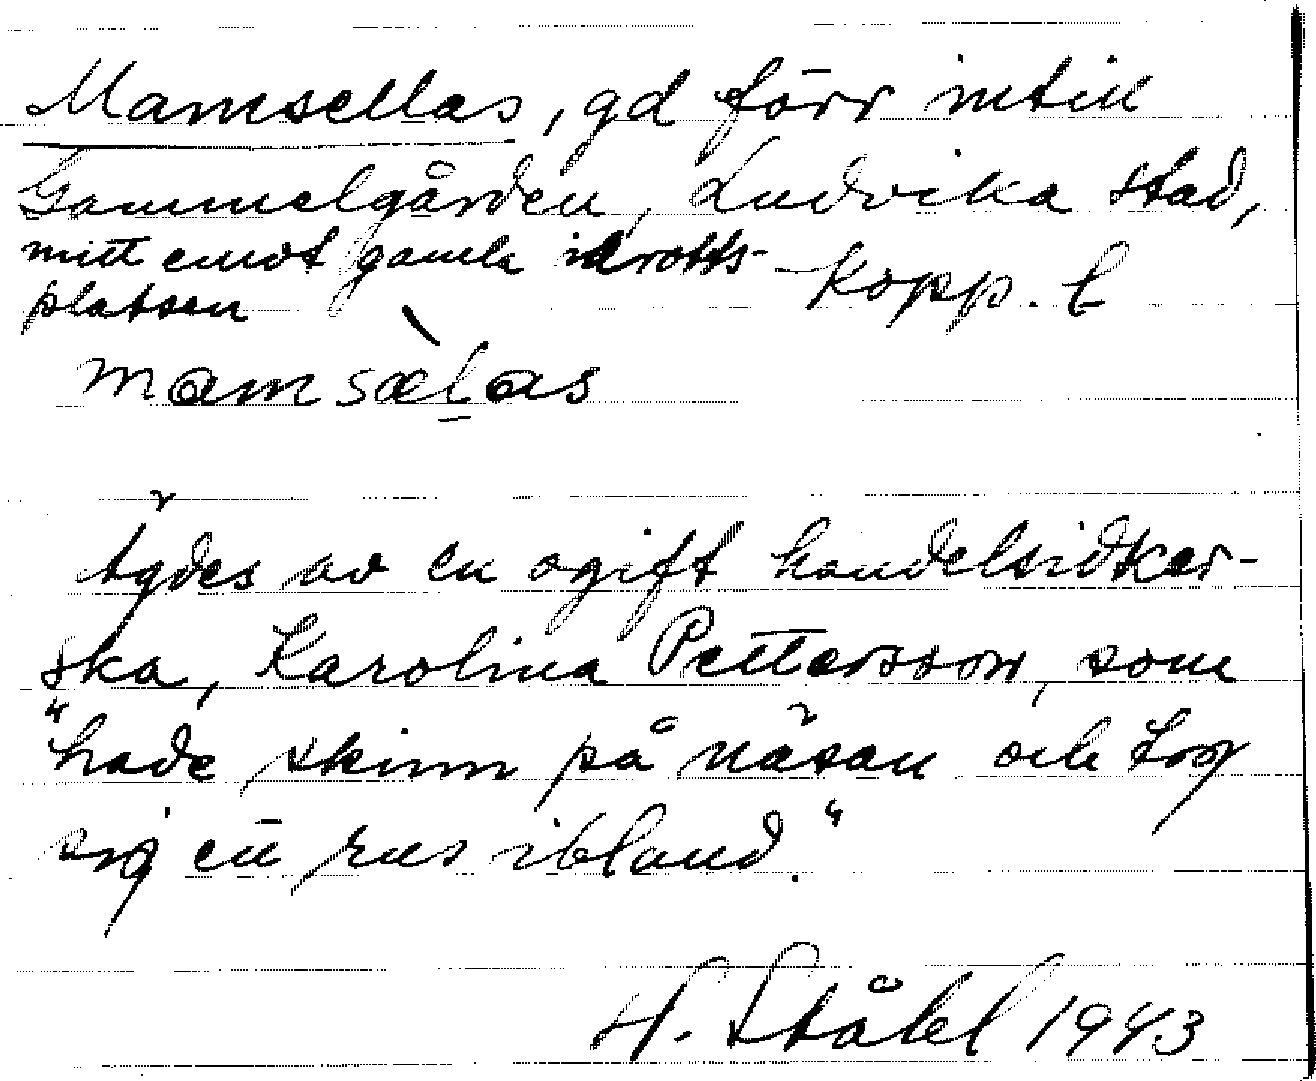 Mamsellas, gd förr intill
Gammelgården, Ludvika stad,
mitt emot gamla idrotts-
platsen
Kopp. l
mamsælas
Ägdes av en ogift handelsidker-
ska, Karolina Pettersson, som
"hade skinn på näsan och tog
sig ett rus ibland."
H. Ståhl 1943